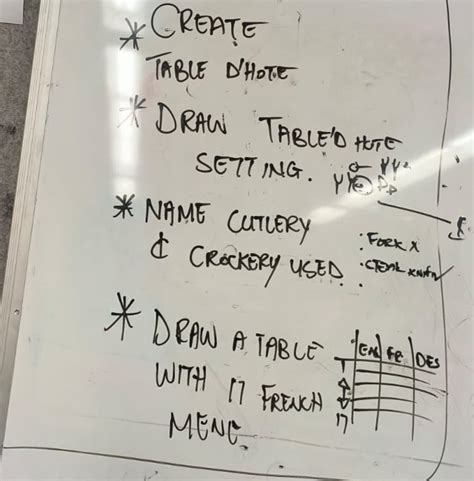 * CREATE
TABLE D'HOTE
* DRAW TABLE'D HOTE
SETTING.
* NAME CUTLERY
& CROCKERY USED
: FORK X
* DRAW A TABLE
WITH 17 FRENCH
MENE
EN FR DES
1
17